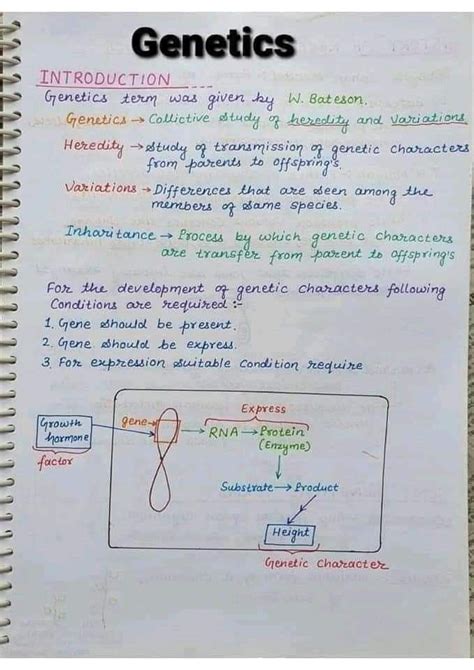 Genetics
INTRODUCTION
Genetics term was given by W. Bateson.
Genetics → Collictive study of heredity and variations
Heredity → Study of transmission of genetic characters
from parents to offspring's
Variations → Differences that are seen among the
members of same species.
Inharitance → Process by which genetic characters
are transfer from parent to offspring's
For the development of genetic characters following
Conditions are required :-
1. Gene should be present.
2. Gene should be express.
3. For expression suitable condition require
Express
Growth
hormone
factor
gene →
→ RNA → Protein
(Enzyme)
Substrate → Product
Height
Genetic Character